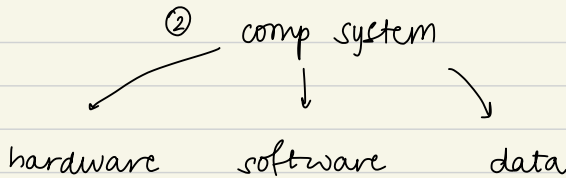 ② comp system
hardware software data